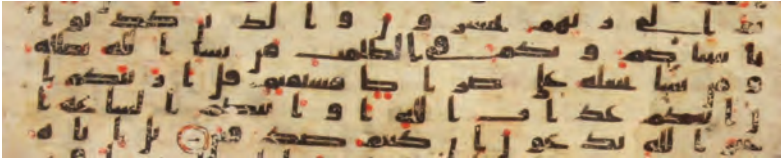 ثم الى ربهم يحشرون والذين كذبوا
بايتنا صم وبكم في الظلمت من يشا الله يضلله
ومن يشا يجعله على صراط مستقيم قل اريتكم ا
ن اتيكم عذاب الله او اتتكم الساعة ا
غير الله تدعون ان كنتم صدقين بل اياه